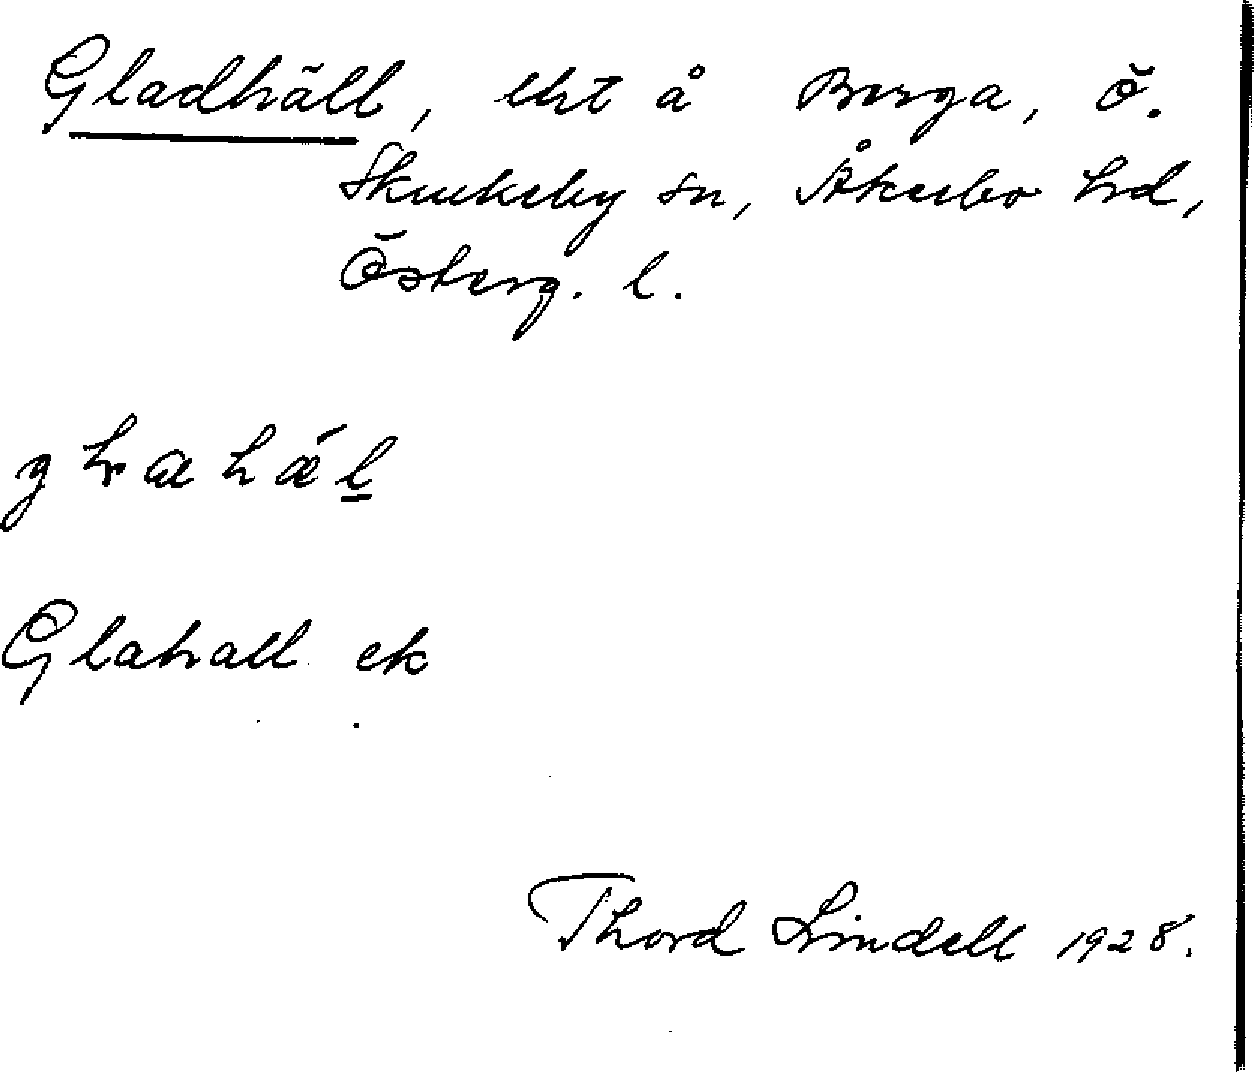 Gladhäll, lht å Borga, Ö.
Skrukeby sn, Åkerbo hd,
Österg. l.
Glahall ek
Thord Lindell 1928.